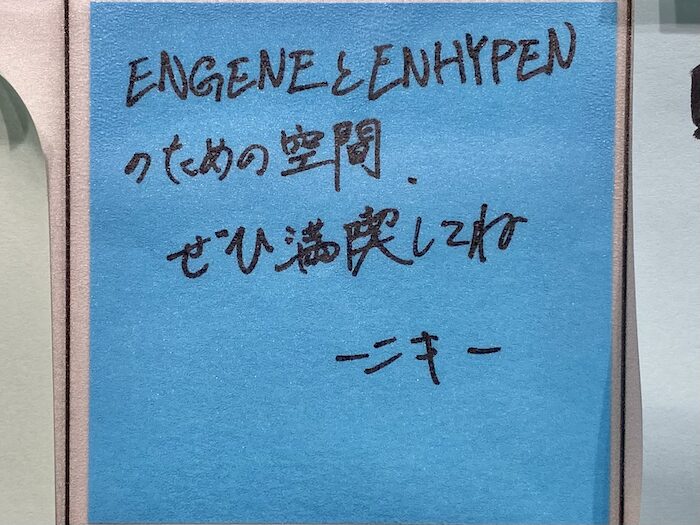 ENGENEとENHYPEN
のための空間.
ぜひ満喫してね
ーニキー